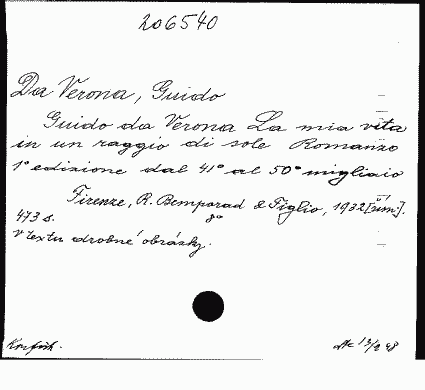 206540
Da Verona, Guido
Guido da Verona La mia vita
in un raggio di sole Romanzo
1° edizione dal 41° al 50° migliaio
Firenze, R. Bemporad & Figlio, 1932
473 s. 8°
V textu drobné obrázky.
Konfisk.